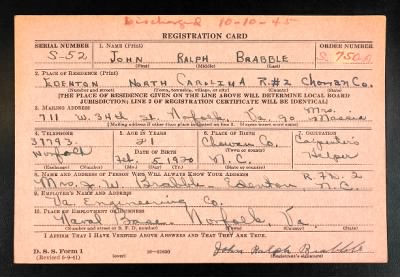 Discharged 10-10-45
REGISTRATION CARD
SERIAL NUMBER 1. NAME (Print) ORDER NUMBER
S-52 JOHN RALPH BRABBLE
(First) (Middle) (Last)
2. PLACE OF RESIDENCE (Print)
EDENTON NORTH CAROLINA R.#2 Chowan Co.
(Number and street) (Town, township, village, or city) (County) (State)
[THE PLACE OF RESIDENCE GIVEN ON THE LINE ABOVE WILL DETERMINE LOCAL BOARD
JURISDICTION; LINE 2 OF REGISTRATION CERTIFICATE WILL BE IDENTICAL]
3. MAILING ADDRESS
711 W. 34th St. Norfolk, Va.
[Mailing address if other than place indicated on line 2. If same insert word same]
4. TELEPHONE 5. AGE IN YEARS 6. PLACE OF BIRTH 7. OCCUPATION
21 Chowan Co. Carpenter's
Norfolk Feb. 5 1920 N.C. Helper
(Exchange) (Number) (Mo.) (Day) (Yr.) (State or country)
8. NAME AND ADDRESS OF PERSON WHO WILL ALWAYS KNOW YOUR ADDRESS
Mrs. J. W. Brabble - Edenton, N.C.
9. EMPLOYER'S NAME AND ADDRESS
Va. Engineering Co.
10. PLACE OF EMPLOYMENT OR BUSINESS
Naval Base - Norfolk, Va.
(Number and street or R. F. D. number) (Town) (County) (State)
I AFFIRM THAT I HAVE VERIFIED ABOVE ANSWERS AND THAT THEY ARE TRUE.
D. S. S. Form 1
(Revised 5-9-41) (over) John Ralph Brabble
(Registrant's signature)